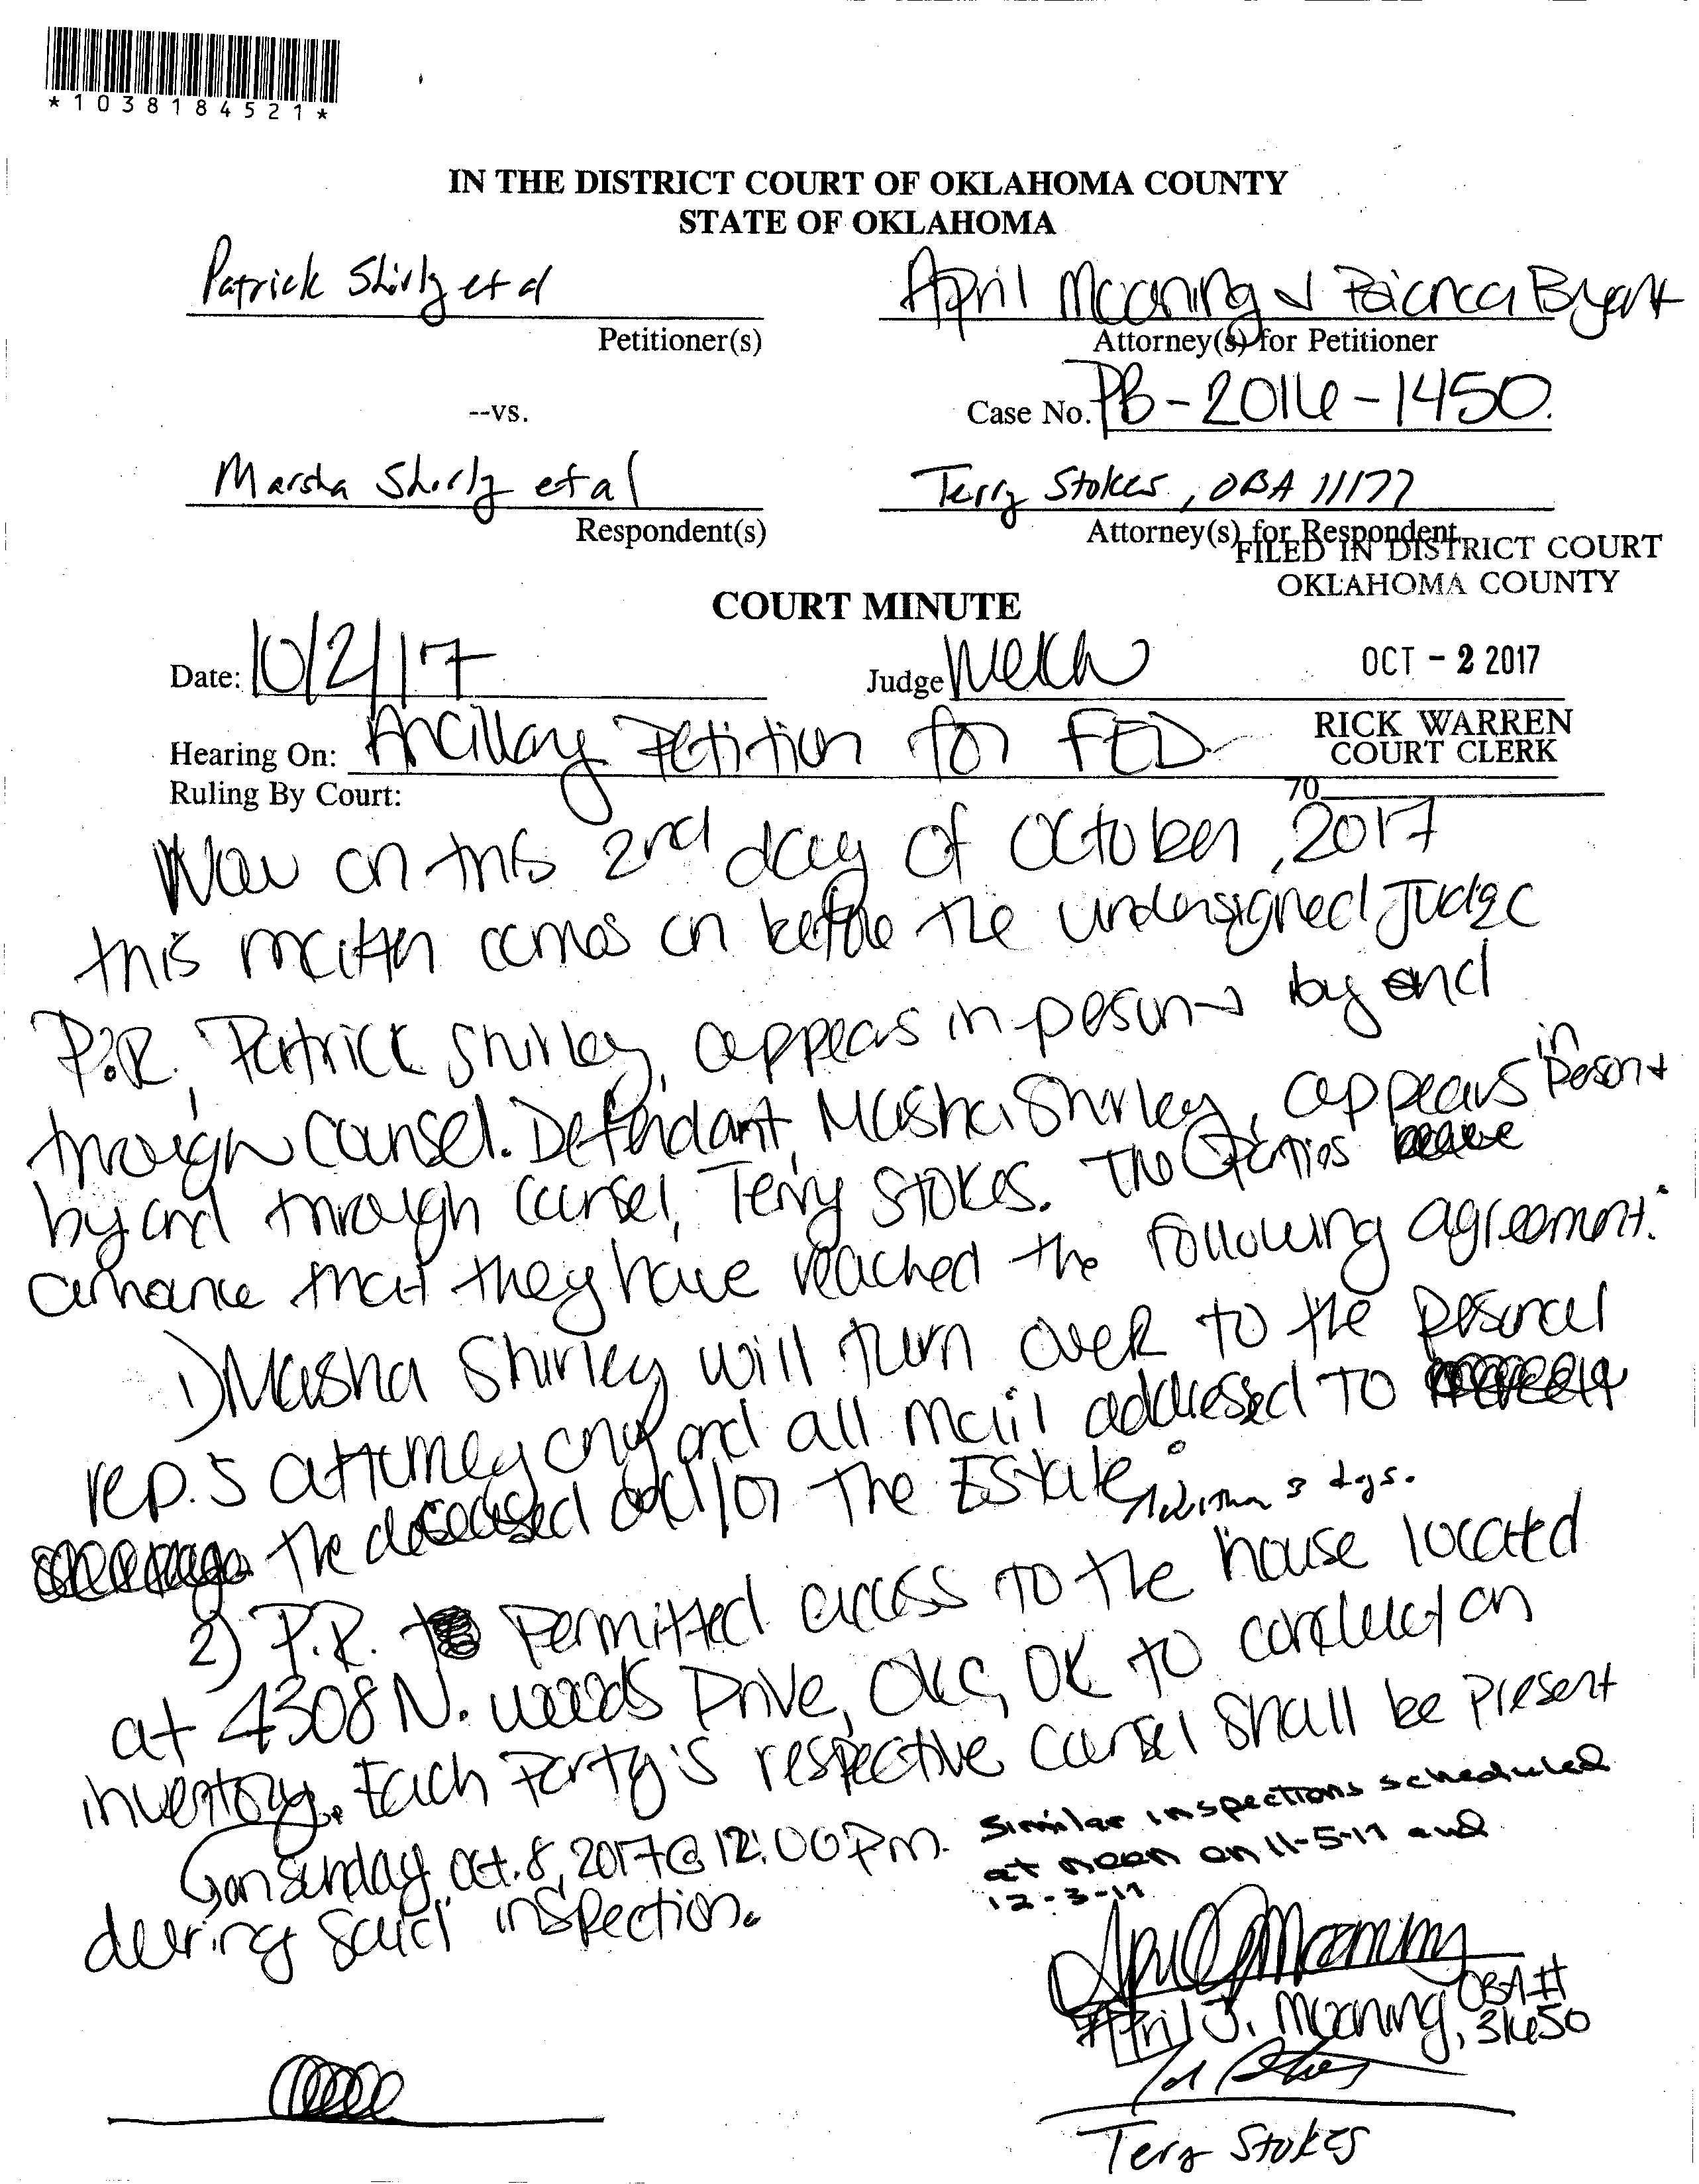 *1038184521*
IN THE DISTRICT COURT OF OKLAHOMA COUNTY
STATE OF OKLAHOMA
Patrick Shirly et al
April Mooning & Bryant
Petitioner(s)
Attorney(s) for Petitioner
--vs.
Case No. PB-2016-1450.
Marsha Shirly et al
Terry Stokes, OBA 11177
Respondent(s)
Attorney(s) for Respondent
FILED IN DISTRICT COURT
OKLAHOMA COUNTY
COURT MINUTE
OCT - 2 2017
Date: 10/2/17
Judge Welch
RICK WARREN
COURT CLERK
Hearing On: Ancillary Petition for FED
70
Ruling By Court:
Now on this 2nd day of October, 2017
this matter comes on before the undersigned Judge
P.R., Patrick Shirley, appears in person & by and
through counsel. Defendant, Marsha Shirley, appears in person &
by and through counsel, Terry Stokes. The Parties
announce that they have reached the following agreement:
1) Marsha Shirley will turn over to the personal
rep.s attorney any and all mail addressed to
the deceased and/or the Estate, within 3 dys.
2) P.R. permitted access to the house located
at 4308 N. Woods Drive, OKC, OK to conduct an
inventory. Each Party's respective counsel shall be present
on Sunday Oct. 8, 2017 @ 12:00 pm. Similar inspections scheduled
at noon on 11-5-17 and
12-3-17
during said inspection.
April J. Mooning, OBA# 31650
Terry Stokes